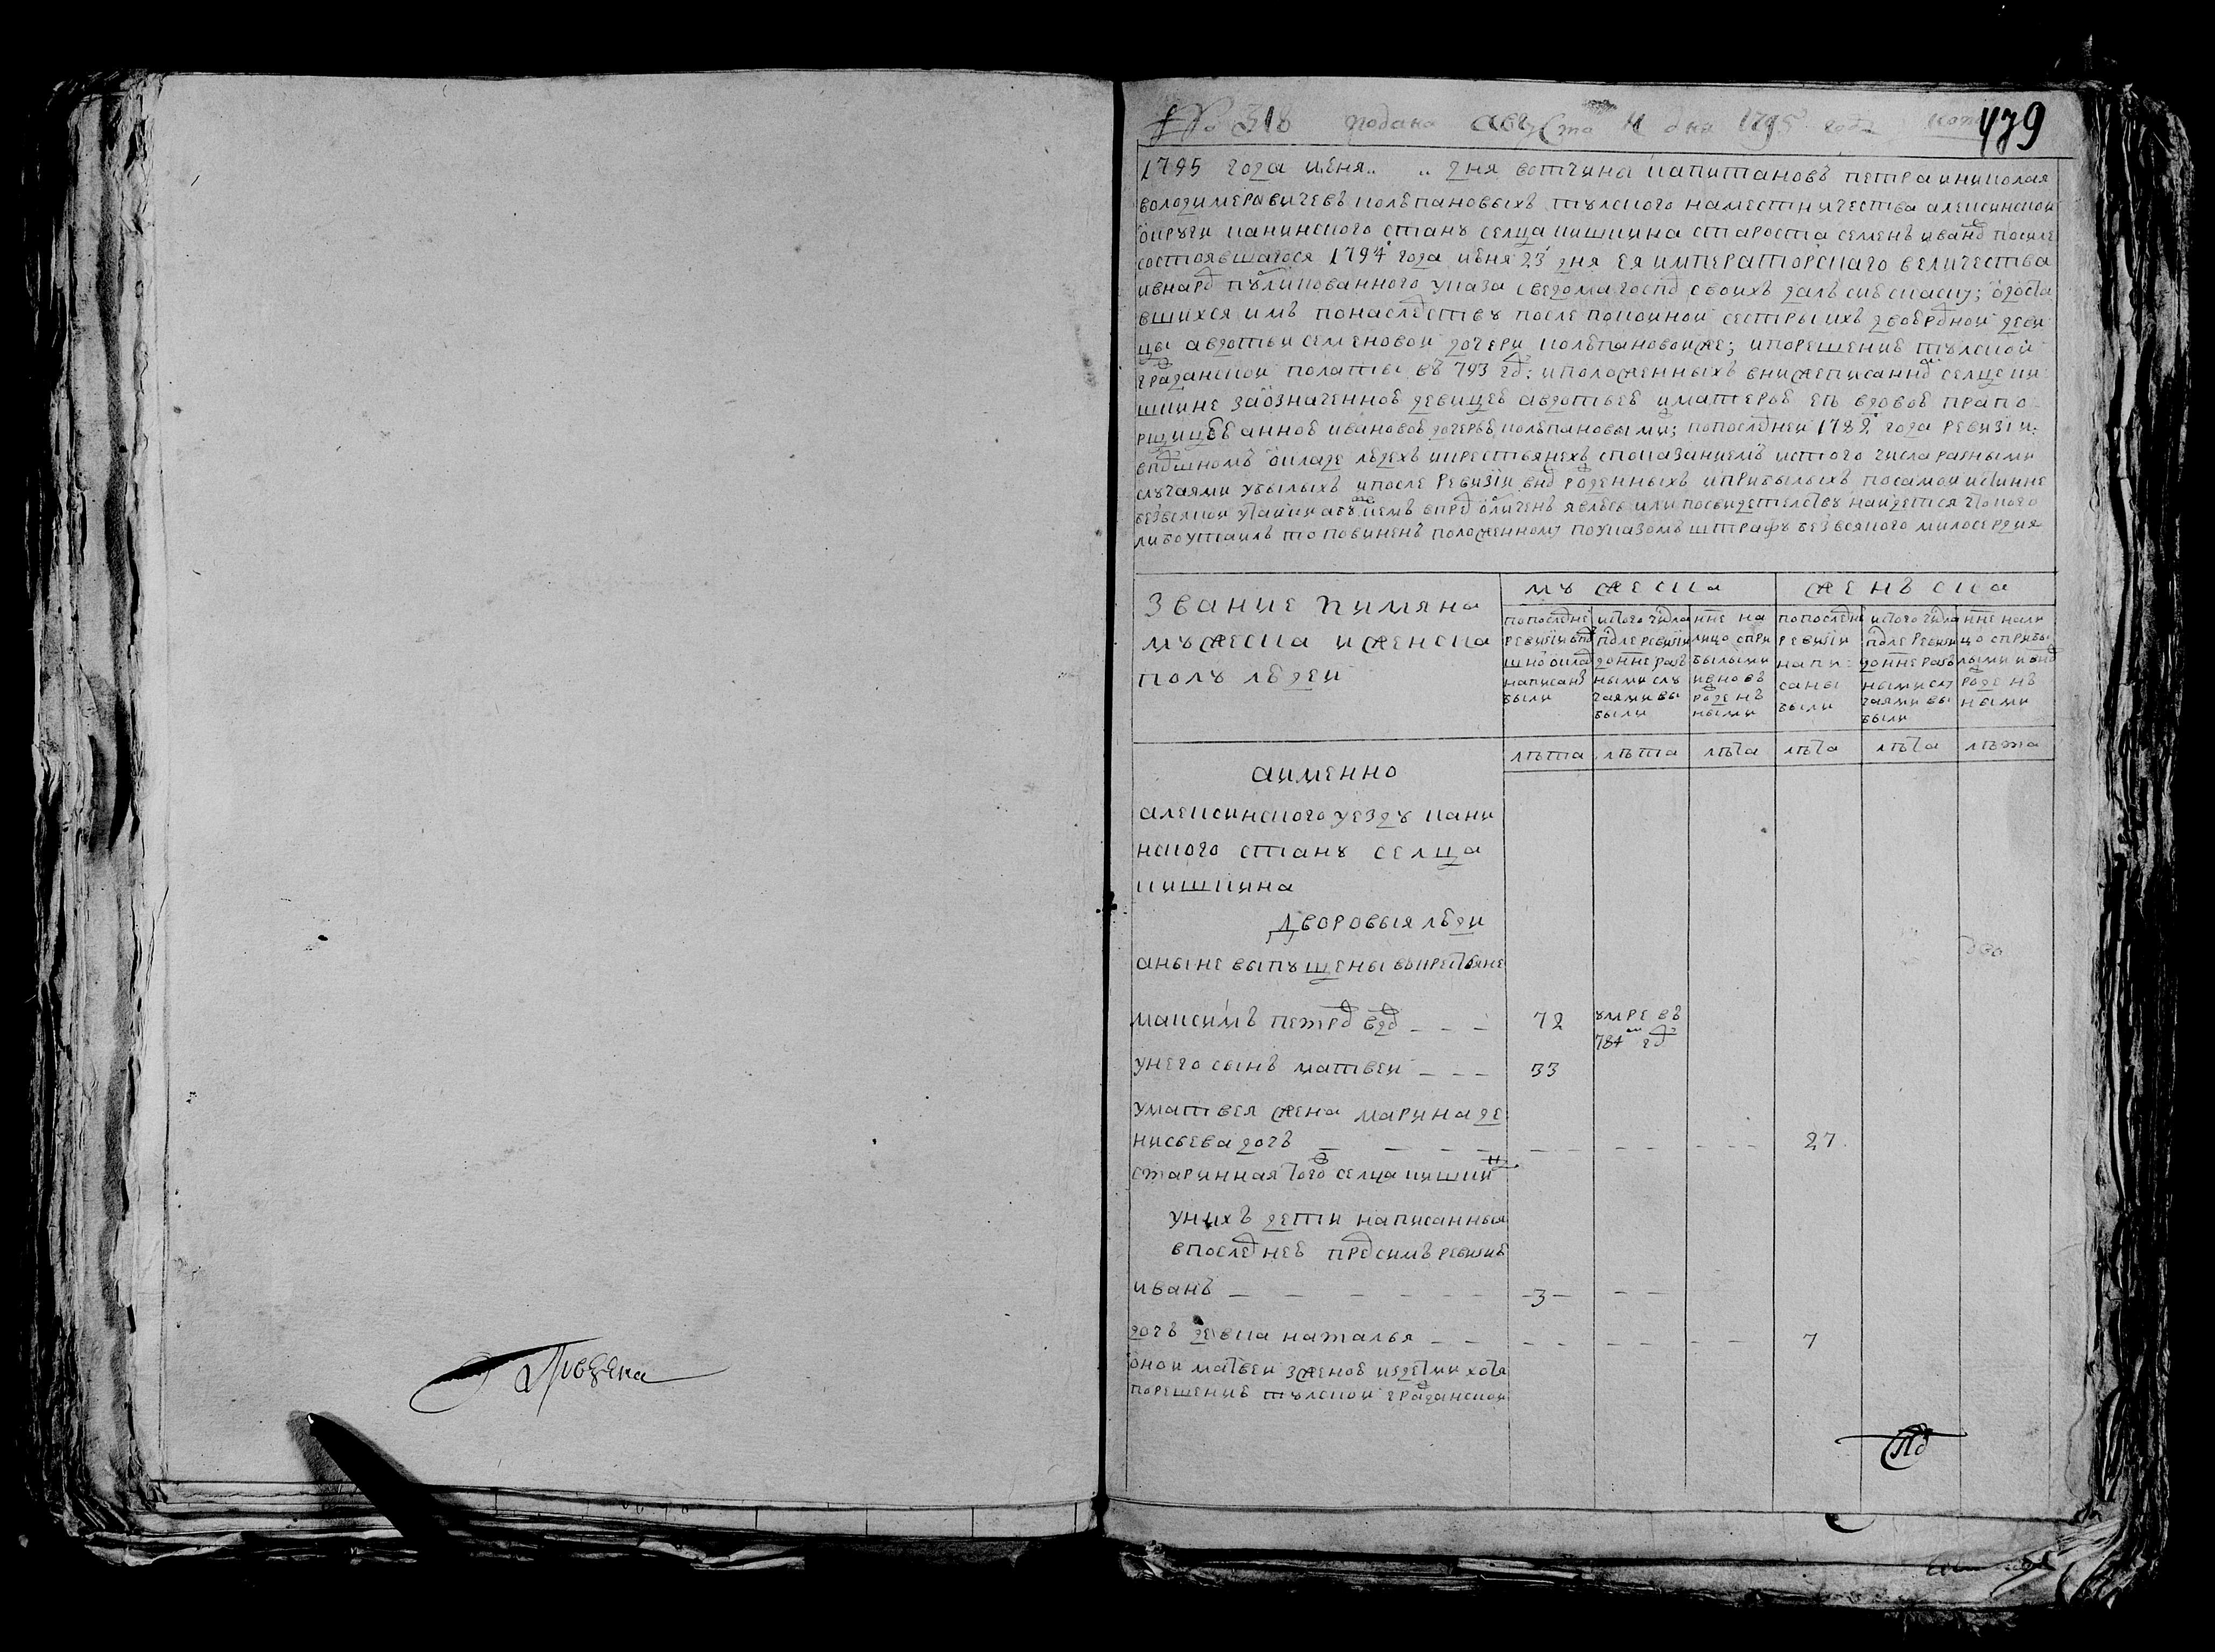 № 318 подана августа 11 дня 1795 года
479
1795 года июня.. .. дня вотчины капитановъ петра иниколая
володимеравичевъ колюпановыхъ тулского наместничества алексинской
округи канинского стану селца кишкина староста семенъ ивано посиле
состоявшагося 1794 года июня 23 дня ея императорскаго величества
ивнарод публикованного указа сведома госпд своихъ далъ сию скаску; одоста
вшихся имъ понаследству после покоиной сестры ихъ двоюрдной деви
цы авдотьи семеновои дочери колюпановоиже; ипорешению тулской
гражданской полаты въ 793 гд: иположенныхъ внижеписанно селце ки
шкине заозначенною девицею авдотьею иматерью еъ вдовою прапо
рщицею анною ивановою дочерью колюпановыми; попоследней 1782 года ревизiи
вподшномъ окладе людехъ икрестьянехъ споказаниемъ истого числа разными
случаями убылыхъ ипосле ревизiи внд рожденныхъ иприбылыхъ посамои истинне
безвсякои утаики абуде кемъ впрд обличенъ явлюсь или посвидетелству наидется чтокого
либо утаилъ то повиненъ положенному поуказомъ штрафу безвсякого милосердия
звание иимяна
мужеска иженска
полу людеи
мужеска
женъска
попоследне
ревизiи впд
шно оклад
написаны
были
истого числа
после ревизiи
доnне разъ
ными слу
чаями вы
были
нне на
лицо спри
былыми
ивновъ
рожденъ
ными
попоследне
ревизiи
напи
саны
были
истого числа
после ревизи
донне разъ
ными слу
чаями вы
были
нне нали
цо сприбы
лыми ивнд
рожденъ
ными
лѣта лѣта лѣта лѣта лѣта лѣта
аименно
алексинского уезду кани
нского стану селца
кишкина
Дворовыя люди
аныне выпущены вокрестьяне
максимъ петрд вдд - - - 72 умре въ
784м гд
унего сынъ матвеи - - - 33
уматвея жена марина де
нисьева дочъ - - - 27
старинная того селца кишки
унихъ дети написанныя
впоследнею предсимъ ревизию
иванъ - - - 3 - - -
дочъ девка наталья - - - 7
онои матвеи зженою издетми хотя
порешению тулскои гражданскои